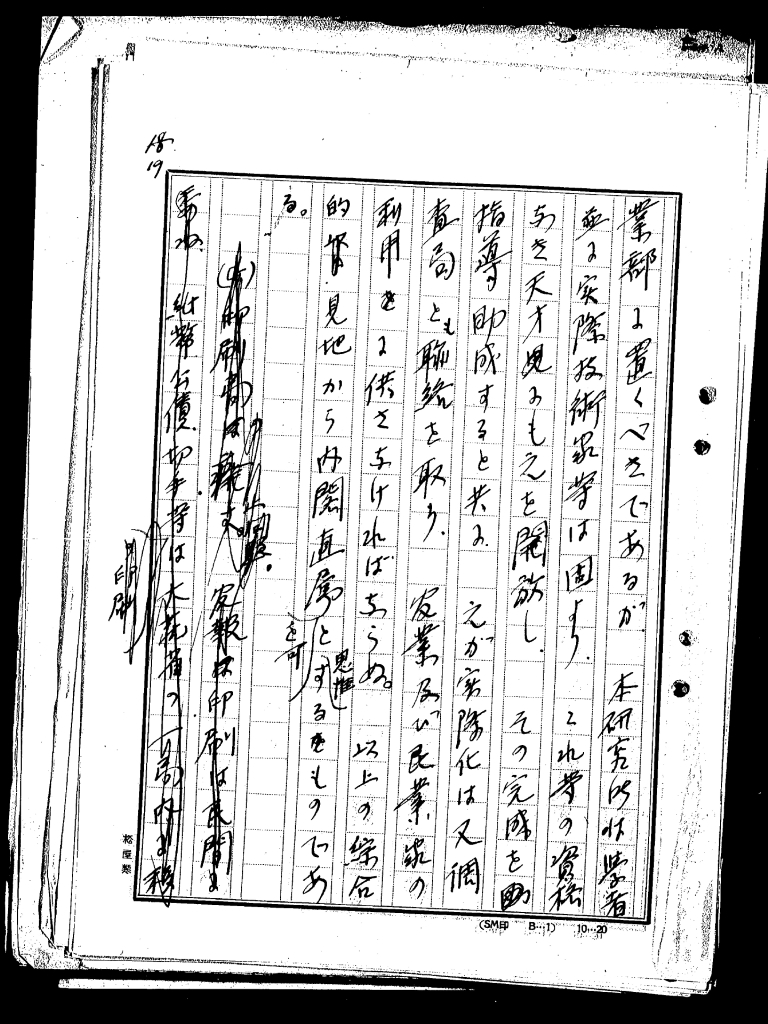 業部に置くべきであるが、本研究所は学者
並に実際技術家等は固より、これ等の資格
なき天才児にも之を開放し、その完成を助
指導助成すると共に、之が実際化は又調
査局とも聯絡を取り、官業及び民業家の
利用に供さなければならぬ。以上の綜合
的見地から内閣直属とするものであ
る。
印刷局は廃す。官報印刷は民間に
紙幣公債切手等は大蔵省の一局内に
印刷
18
19
(SM印 B…1) 10…20